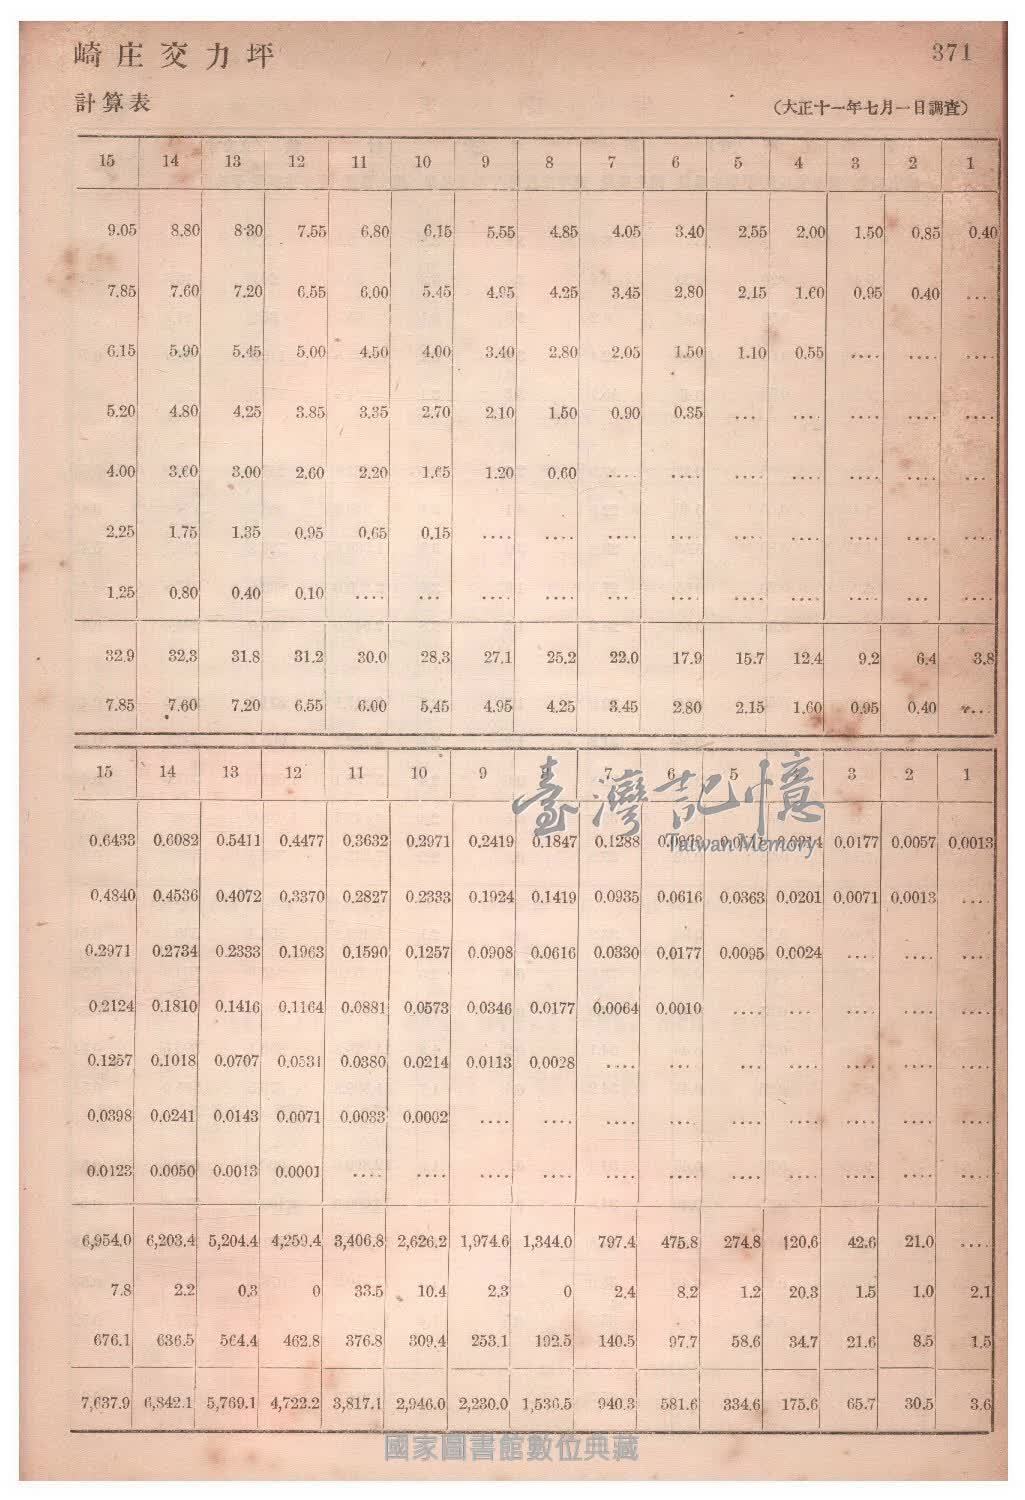 崎庄交力坪 371
計算表 (大正十一年七月一日調査)
15 14 13 12 11 10 9 8 7 6 5 4 3 2 1
9.05 8.80 8·30 7.55 6.80 6.15 5.55 4.85 4.05 3.40 2.55 2.00 1.50 0.85 0.40
7.85 7.60 7.20 6.55 6.00 5.45 4.95 4.25 3.45 2.80 2.15 1.60 0.95 0.40 ....
6.15 5.90 5.45 5.00 4.50 4.00 3.40 2.80 2.05 1.50 1.10 0.55 .... .... ....
5.20 4.80 4.25 3.85 3.35 2.70 2.10 1.50 0.90 0.35 .... .... .... .... ....
4.00 3.60 3.00 2.60 2.20 1.65 1.20 0.60 .... .... .... .... .... .... ....
2.25 1.75 1.35 0.95 0.65 0.15 .... .... .... .... .... .... .... .... ....
1.25 0.80 0.40 0.10 .... .... .... .... .... .... .... .... .... .... ....
32.9 32.3 31.8 31.2 30.0 28.3 27.1 25.2 22.0 17.9 15.7 12.4 9.2 6.4 3.8
7.85 7.60 7.20 6.55 6.00 5.45 4.95 4.25 3.45 2.80 2.15 1.60 0.95 0.40 ....
15 14 13 12 11 10 9 8 7 6 5 3 2 1
臺灣記憶
Taiwan Memory
0.6433 0.6082 0.5411 0.4477 0.3632 0.2971 0.2419 0.1847 0.1288 0.0177 0.0057 0.0013
0.4840 0.4536 0.4072 0.3370 0.2827 0.2333 0.1924 0.1419 0.0935 0.0616 0.0363 0.0201 0.0071 0.0013 ....
0.2971 0.2734 0.2333 0.1963 0.1590 0.1257 0.0908 0.0616 0.0330 0.0177 0.0095 0.0024 .... .... ....
0.2124 0.1810 0.1416 0.1164 0.0881 0.0573 0.0346 0.0177 0.0064 0.0010 .... .... .... .... ....
0.1257 0.1018 0.0707 0.0531 0.0380 0.0214 0.0113 0.0028 .... .... .... .... .... .... ....
0.0398 0.0241 0.0143 0.0071 0.0033 0.0002 .... .... .... .... .... .... .... .... ....
0.0123 0.0050 0.0013 0.0001 .... .... .... .... .... .... .... .... .... .... ....
6,954.0 6,203.4 5,204.4 4,259.4 3,406.8 2,626.2 1,974.6 1,344.0 797.4 475.8 274.8 120.6 42.6 21.0 ....
7.8 2.2 0.3 0 33.5 10.4 2.3 0 2.4 8.2 1.2 20.3 1.5 1.0 2.1
676.1 636.5 564.4 462.8 376.8 309.4 253.1 192.5 140.5 97.7 58.6 34.7 21.6 8.5 1.5
7,637.9 6,842.1 5,769.1 4,722.2 3,817.1 2,946.0 2,230.0 1,536.5 940.3 581.6 334.6 175.6 65.7 30.5 3.6
國家圖書館數位典藏